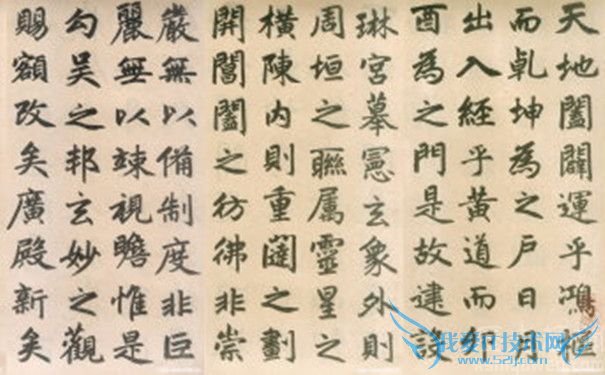 天地闔闢運乎鴻樞
而乹坤為之戶日月
出入經乎黃道而卯
酉為之門是故建設
琳宮摹憲玄象外則
周垣之聯属靈星之
橫陳內則重闥之劃
開閶闔之彷彿非崇
嚴無以備制度非巨
麗無以竦視瞻惟是
勾吳之邦玄妙之觀
賜額改矣廣殿新矣
我爱IT技术网